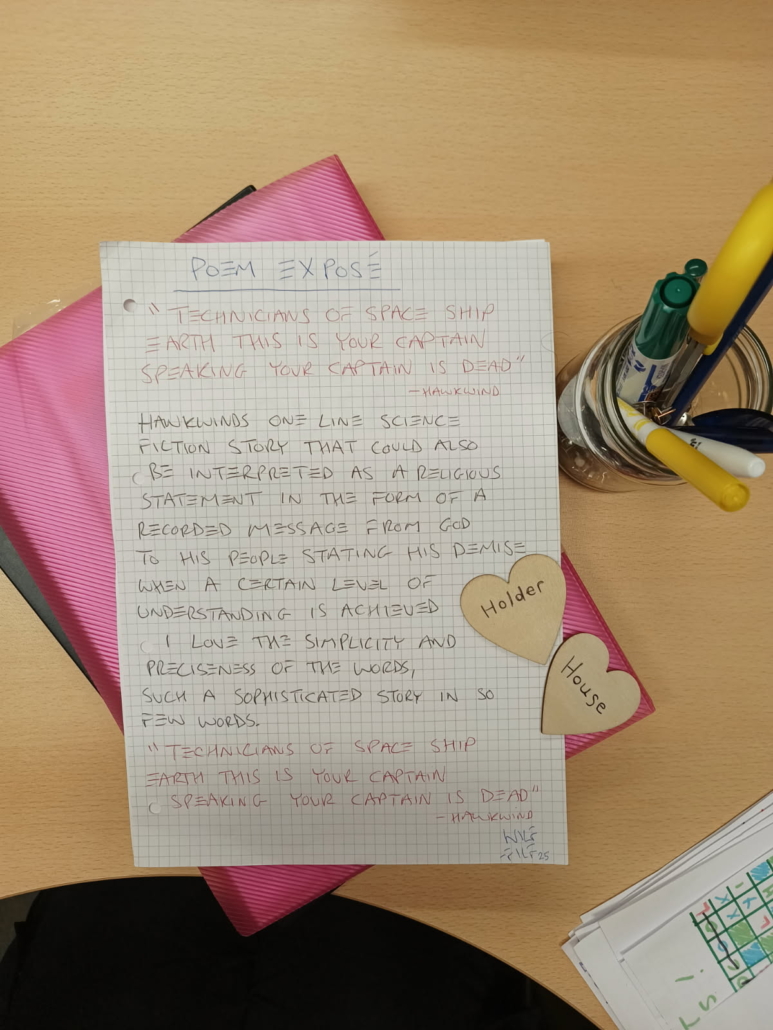 POEM EXPOSÉ
"TECHNICIANS OF SPACE SHIP
EARTH THIS IS YOUR CAPTAIN
SPEAKING YOUR CAPTAIN IS DEAD"
-HAWKWIND
HAWKWINDS ONE LINE SCIENCE
FICTION STORY THAT COULD ALSO
BE INTERPRETED AS A RELIGIOUS
STATEMENT IN THE FORM OF A
RECORDED MESSAGE FROM GOD
TO HIS PEOPLE STATING HIS DEMISE
WHEN A CERTAIN LEVEL OF
UNDERSTANDING IS ACHIEVED
I LOVE THE SIMPLICITY AND
PRECISENESS OF THE WORDS,
SUCH A SOPHISTICATED STORY IN SO
FEW WORDS.
"TECHNICIANS OF SPACE SHIP
EARTH THIS IS YOUR CAPTAIN
SPEAKING YOUR CAPTAIN IS DEAD"
-HAWKWIND
Holder
House